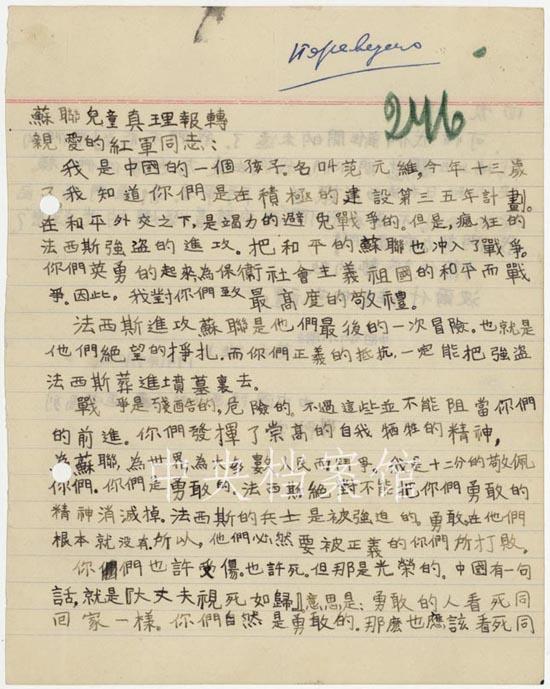 Переведено
246
蘇聯兒童真理報轉
親愛的紅軍同志：
我是中國的一個孩子。名叫范元維，今年十三歲
了。我知道你們是在積極的建設第三五年計劃。
在和平外交之下，是竭力的避免戰爭的。但是，瘋狂的
法西斯強盜的進攻。把和平的蘇聯也冲入了戰爭。
你們英勇的起來為保衛社會主義祖國的和平而戰
爭。因此，我對你們致最高度的敬禮。
法西斯進攻蘇聯是他們最後的一次冒險。也就是
他們絕望的掙扎。而你們正義的抵抗，一定能把強盜
法西斯葬進墳墓裏去。
戰爭是殘酷的，危險的。不過這些並不能阻當你們
的前進。你們發揮了崇高的自我犧牲的精神，
為蘇聯，為世界，為大多數人民而戰爭。我是十二分的敬佩
你們。你們是勇敢的。法西斯絕對不能把你們勇敢的
精神消滅掉。法西斯的兵士是被強迫的。勇敢在他們
根本就沒有。所以，他們必然要被正義的你們所打敗。
你們也許受傷。也許死。但那是光榮的。中國有一句
話，就是『大丈夫視死如歸』意思是：勇敢的人看死同
回家一樣。你們自然是勇敢的。那麼也應該看死同
中央档案馆